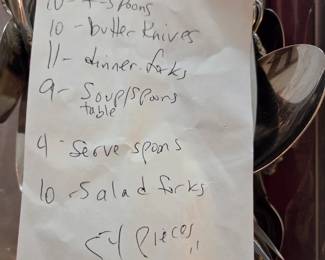 10 - T-spoons
10 - butter Knives
11 - dinner forks
9 - Soup/spoons
table
4 - Serve spoons
10 - Salad forks
54 pieces